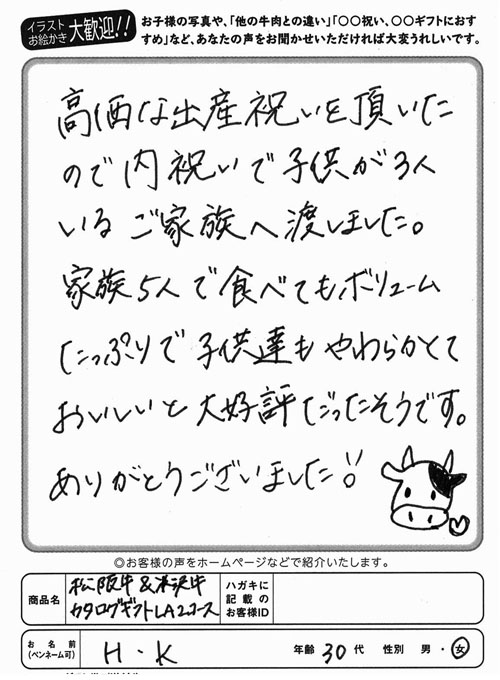 イラスト
お絵かき 大歓迎!! お子様の写真や、「他の牛肉との違い」「〇〇祝い、〇〇ギフトにおす
すめ」など、あなたの声をお聞かせいただければ大変うれしいです。
高価な出産祝いを頂いた
ので内祝いで子供が3人
いるご家族へ渡しました。
家族5人で食べてもボリューム
たっぷりで子供達もやわらかくて
おいしいと大好評だったそうです。
ありがとうございました!!
◎お客様の声をホームページなどで紹介いたします。
商品名 松阪牛&米沢牛
カタログギフトLA2コース
ハガキに
記載の
お客様ID
お名前
(ペンネーム可) H・K 年齢 30代 性別 男・女